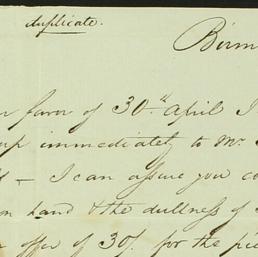 duplicate.
Birm
favor of 30th April I
up immediately to Mr.
I can assure you co
hand & the dullness of
offer of 30/. for the pie